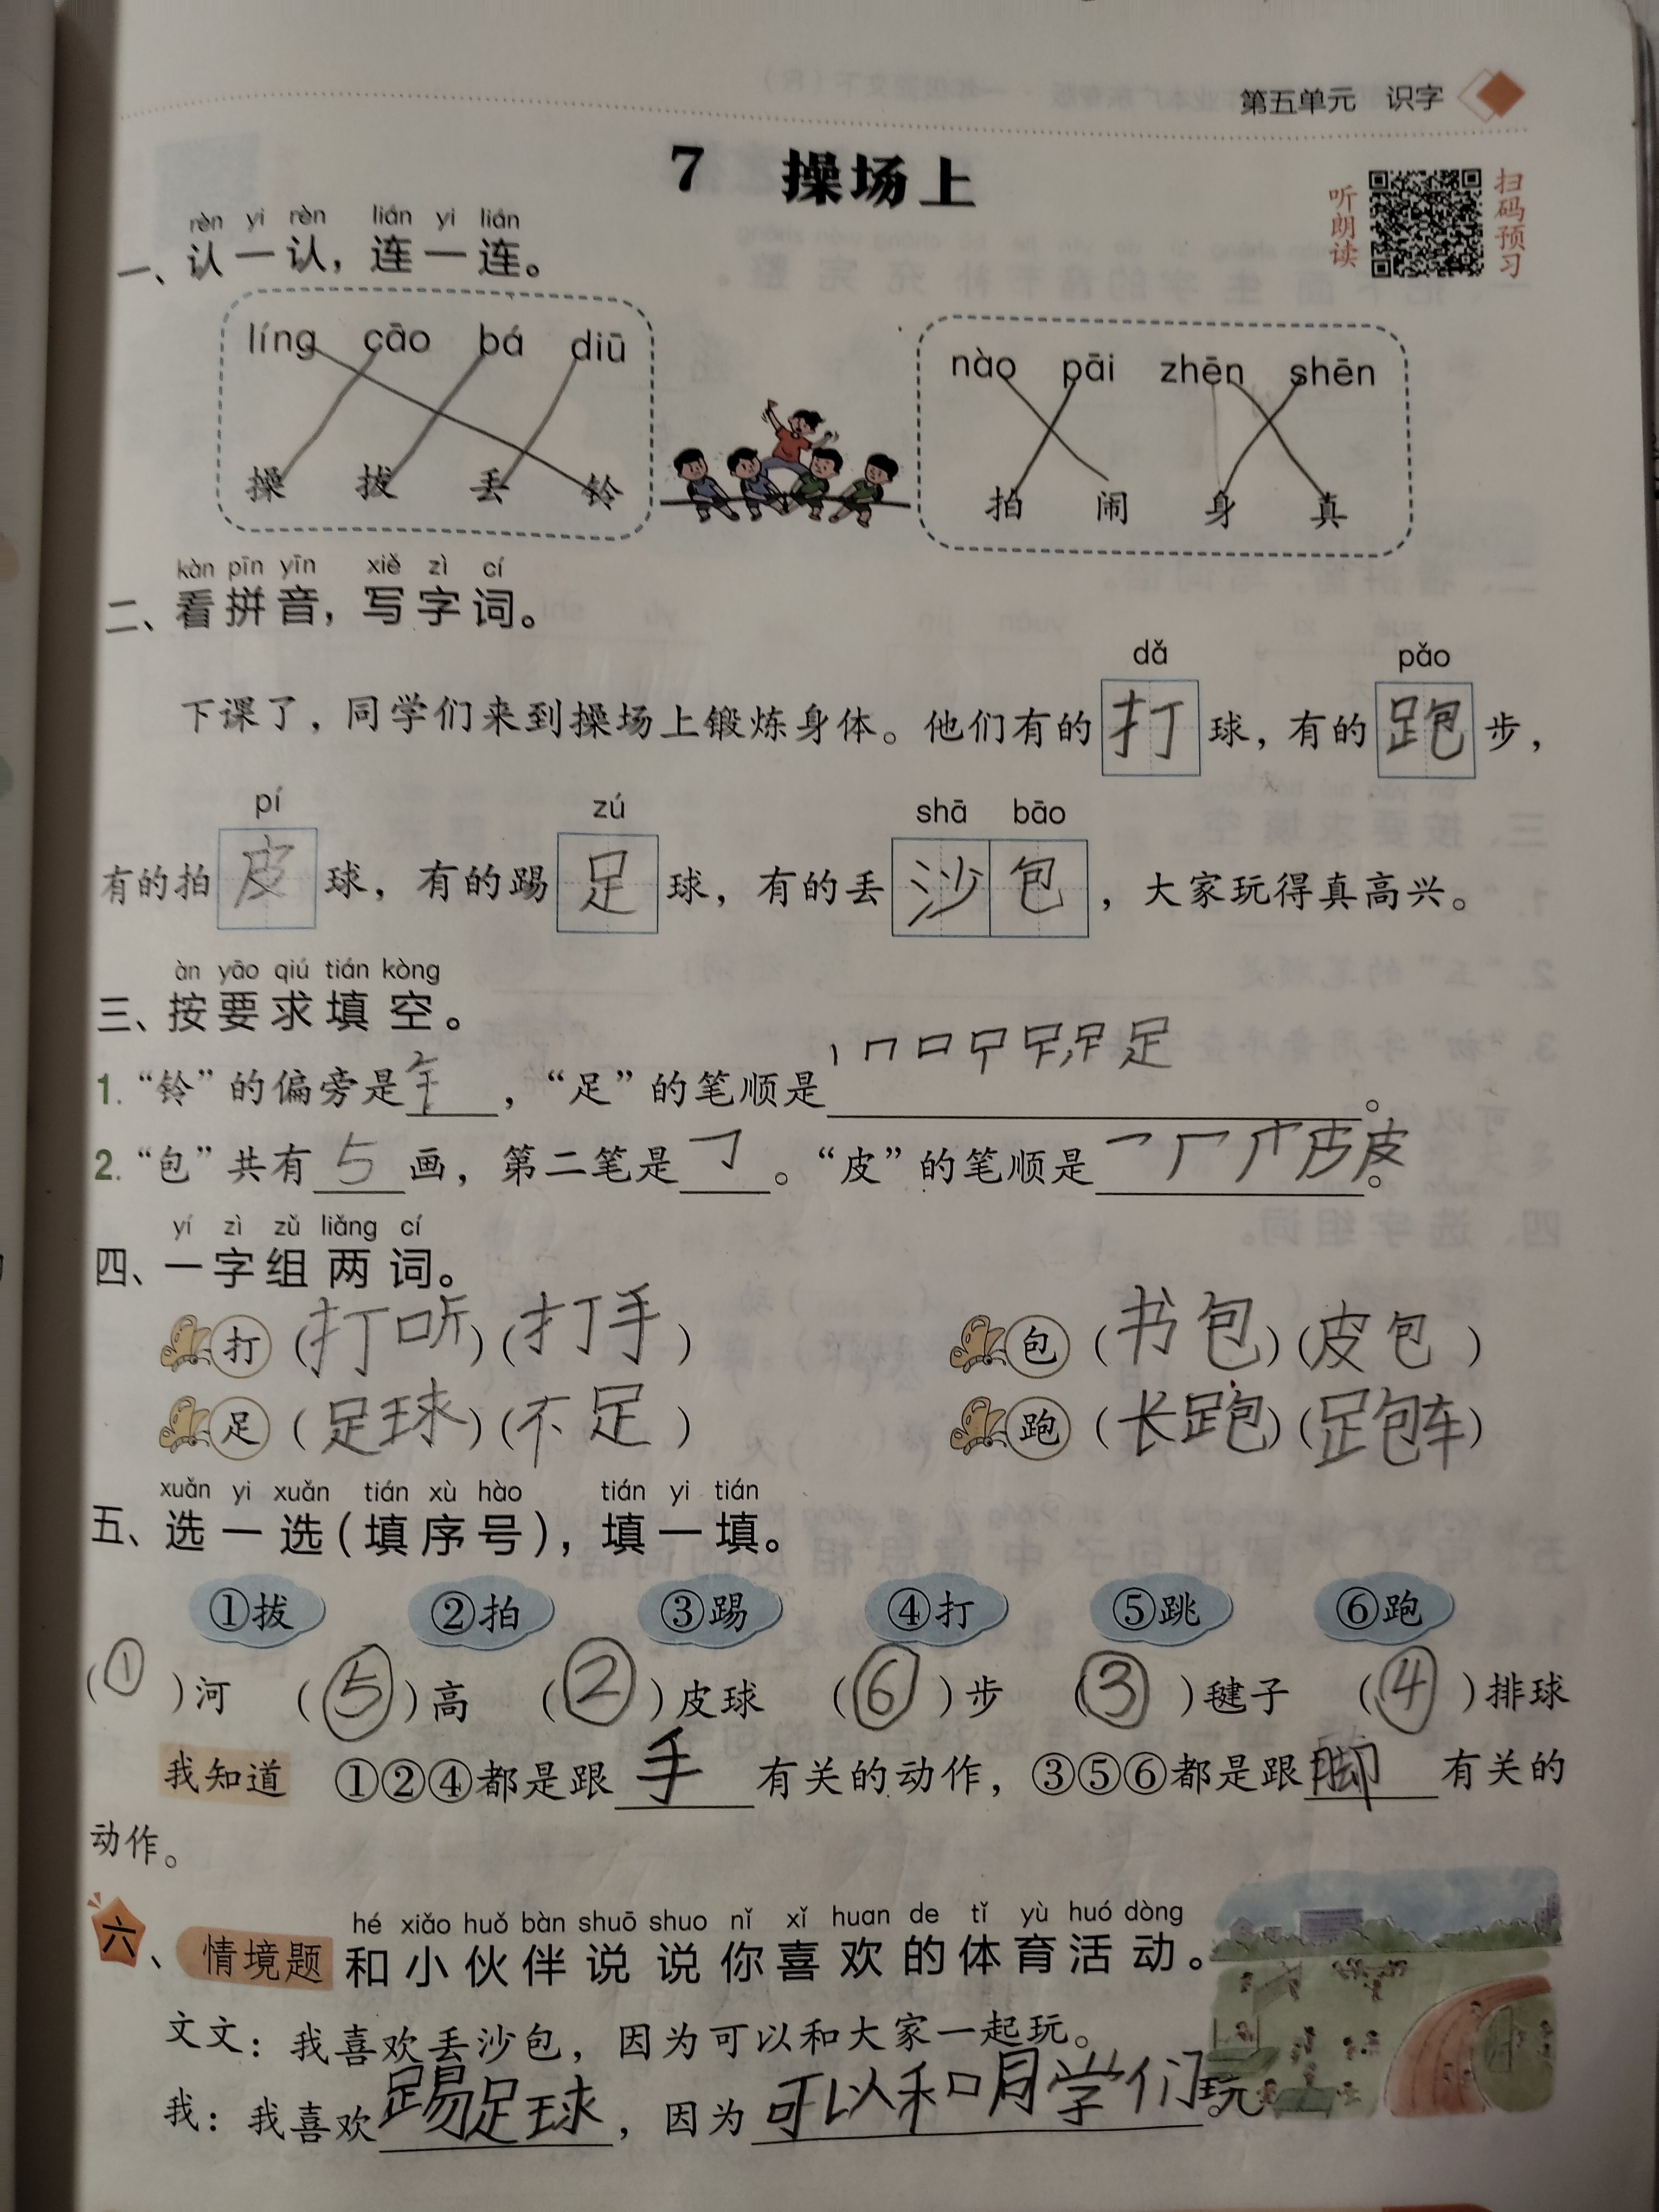 第五单元 识字
7 操场上
听朗读
扫码预习
rèn yi rèn lián yi lián
一、认一认，连一连。
líng cāo bá diū
操 拔 丢 铃
nào pāi zhēn shēn
拍 闹 身 真
kàn pīn yīn xiě zì cí
二、看拼音，写字词。
dǎ pǎo
下课了，同学们来到操场上锻炼身体。他们有的打球，有的跑步，
pí zú shā bāo
有的拍皮球，有的踢足球，有的丢沙包，大家玩得真高兴。
àn yāo qiú tián kòng
三、按要求填空。
1.“铃”的偏旁是钅，“足”的笔顺是丨 𠃍 口 足。
2.“包”共有5画，第二笔是㇆。“皮”的笔顺是㇇ 厂 皮。
yí zì zǔ liǎng cí
四、一字组两词。
打（打听）（打手） 包（书包）（皮包）
足（足球）（不足） 跑（长跑）（跑车）
xuǎn yi xuǎn tián xù hào tián yi tián
五、选一选（填序号），填一填。
①拔 ②拍 ③踢 ④打 ⑤跳 ⑥跑
（①）河 （⑤）高 （②）皮球 （⑥）步 （③）毽子 （④）排球
我知道 ①②④都是跟手有关的动作，③⑤⑥都是跟脚有关的
动作。
hé xiǎo huǒ bàn shuō shuo nǐ xǐ huan de tǐ yù huó dòng
六、情境题 和小伙伴说说你喜欢的体育活动。
文文：我喜欢丢沙包，因为可以和大家一起玩。
我：我喜欢踢足球，因为可以和同学们玩。